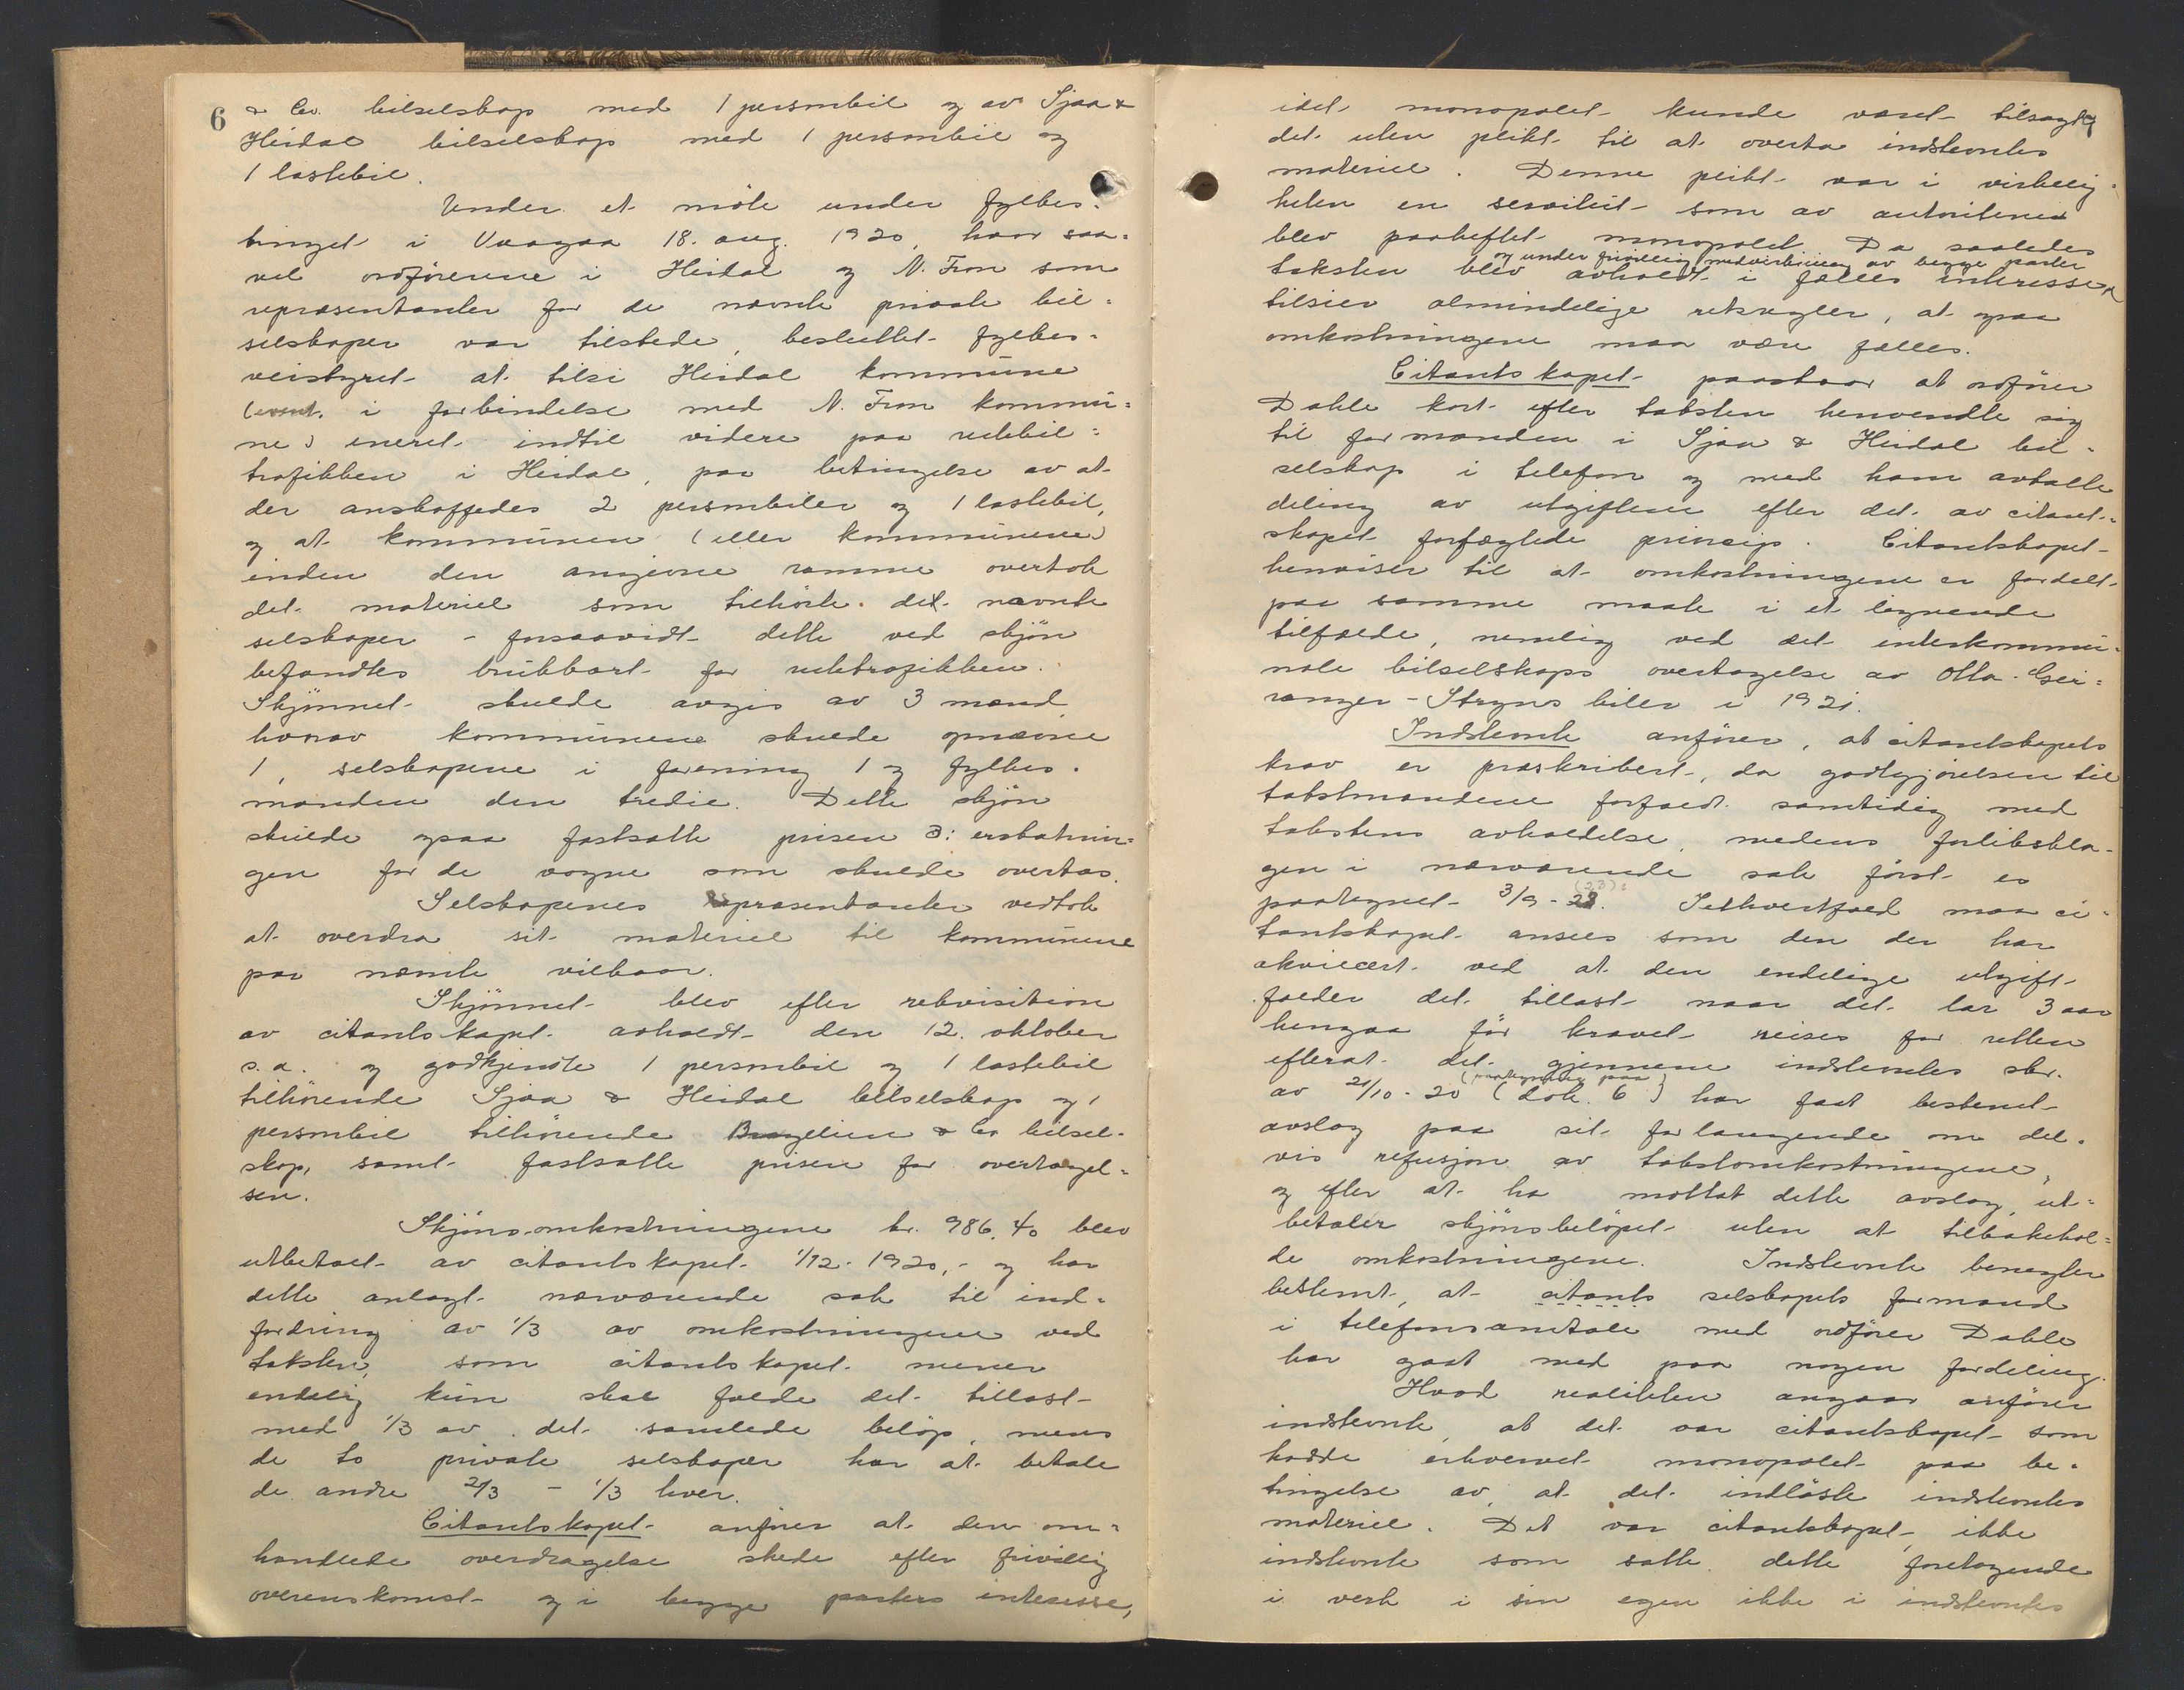 6
& Co. bilselskap med 1 personbil og av Sjoa &
Heidal bilselskap med 1 personbil og
1 lastebil.
Under et møte under fylkes-
tinget i Vaagaa 18. aug. 1920, hvor saa-
vel ordførerne i Heidal og N. Fron som
repræsentanter for de nævnte private bil-
selskaper var tilstede, besluttet fylkes-
veistyret at tilsi Heidal kommune
(event. i forbindelse med N. Fron kommu-
ne) eneret indtil videre paa rutebil-
trafikken i Heidal, paa betingelse av at
der anskaffedes 2 personbiler og 1 lastebil,
og at kommunen (eller kommunene)
inden den angivne ramme overtok
det materiel som tilhørte det nævnte
selskaper - forsaavidt dette ved skjøn
befandtes brukbart for rutetrafikken.
Skjønnet skulde avgis av 3 mænd
hvorav kommunene skulde opnævne
1, selskapene i forening 1 og fylkes-
manden den tredie. Dette skjøn
skulde ogsaa fastsætte prisen ɔ: erstatnin-
gen for de vogne som skulde overtas.
Selskapenes repræsentanter vedtok
at overdra sit materiel til kommunene
paa nævnte vilkaar.
Skjønnet blev efter rekvisition
av citantskapet avholdt den 12. oktober
s.a. og godkjendte 1 personbil og 1 lastebil
tilhørende Sjoa & Heidal bilselskap og 1
personbil tilhørende Brugelien & Co bilsel-
skap, samt fastsatte prisen for overtagel-
sen.
Skjøns-omkostningene kr. 986,40 blev
utbetalt av citantskapet 1/12-1920,- og har
dette anlagt nærværende sak til ind-
fordring av 1/3 av omkostningene ved
taksten, som citantskapet mener
endelig kun skal falde det tillast
med 1/3 av det samlede beløp, mens
de to private selskaper har at betale
de andre 2/3 - 1/3 hver.
Citantskapet anfører at den om-
handlede overdragelse skede efter frivillig
overenskomst og i begge parters interesse,
idet monopolet kunde været tilsagt
det uten plikt til at overta indstevntes
materiel. Denne plikt var i virkelig-
heten en servitut som av autoritene
blev paaheftet monopolet. Da saaledes
og under frivillig medvirkning av begge parter
taksten blev avholdt i fælles interesse
tilsier almindelige retsregler, at ogsaa
omkostningene maa være fælles.
Citantskapet paastaar at ordfører
Dahle kort efter taksten henvendte sig
til formanden i Sjoa & Heidal bil-
selskap i telefon og med ham avtalte
deling av utgiftene efter det av citant-
skapet forfægtede princip. Citantskapet
henviser til at omkostningene er fordelt
paa samme maate i et lignende
tilfælde, nemlig ved det interkommu-
nale bilselskaps overtagelse av Otta-Gei-
ranger-Stryns biler i 1921.
Indstevnte anfører, at citantskapets
krav er præskribert, da godtgjørelsen til
takstmændene forfaldt samtidig med
takstens avholdelse, medens forliksklа-
gen i nærværende sak først er
paategnet 3/9-23. (23): Iethvertfald maa ci-
tantskapet ansees som den der har
akviecert ved at den endelige utgift
falder det tillast naar det lar 3 aar
hengaa før kravet reises for retten
efterat det gjennem indstevntes skr.
(paategning paa)
av 21/10-20 (dok. 6) har faat bestemt
avslag paa sit forlangende om del-
vis refusjon av takstomkostningene,
og efter at ha mottat dette avslag, ut-
betaler skjønsbeløpet uten at tilbakehol-
de omkostningene. Indstevnte benegter
bestemt, at citants selskapets formand
i telefonsamtale med ordfører Dahle
har gaat med paa nogen fordeling.
Hvad realiteten angaar anfører
indstevnte, at det var citantskapet som
hadde erhvervet monopolet paa be-
tingelse av, at det indløste indstevntes
materiel. Det var citantskapet, ikke
indstevnte som satte dette foretagende
i verk i sin egen ikke i indstevntes